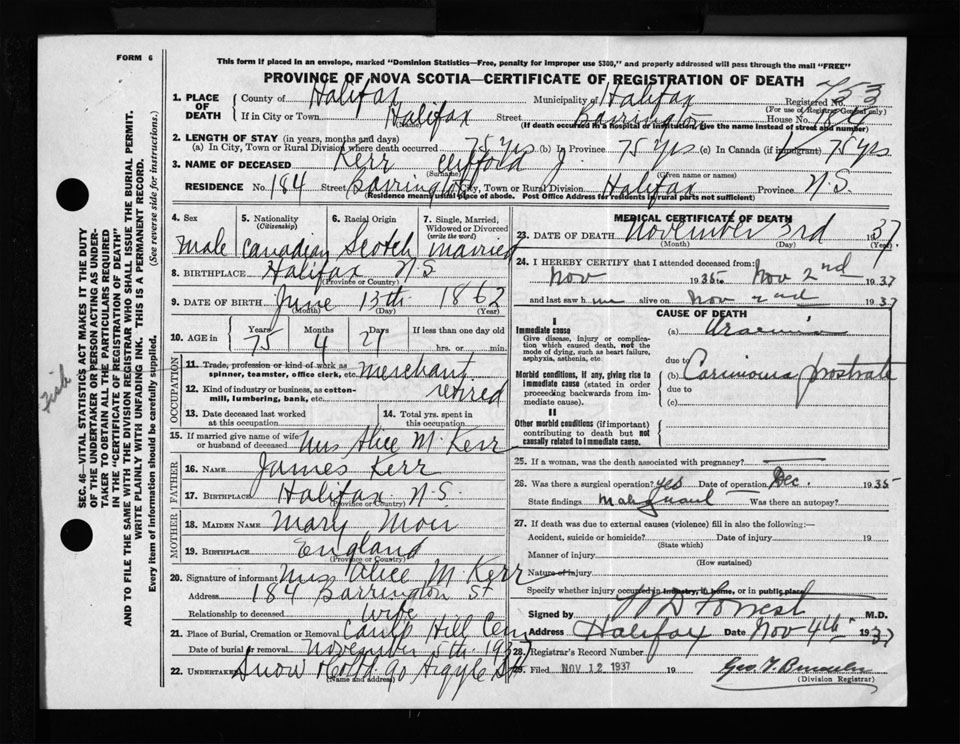 FORM 6
This form if placed in an envelope, marked "Dominion Statistics—Free, penalty for improper use $300," and properly addressed will pass through the mail "FREE"
PROVINCE OF NOVA SCOTIA—CERTIFICATE OF REGISTRATION OF DEATH
753
1. PLACE OF DEATH
County of Halifax Municipality of Halifax Registered No.
(For use of Registrar General only)
If in City or Town Halifax Street Barrington House No. 184
(Name) (If death occurred in a hospital or institution, give the name instead of street and number)
2. LENGTH OF STAY (in years, months and days)
(a) In City, Town or Rural Division where death occurred 75 yrs (b) In Province 75 yrs (c) In Canada (if immigrant) 75 yrs
3. NAME OF DECEASED Kerr Clifford J.
(Surname) (Given name or names)
RESIDENCE No. 184 Street Barrington City, Town or Rural Division Halifax Province N.S.
(Residence means usual place of abode. Post Office Address for residents in rural parts not sufficient)
4. Sex 5. Nationality (Citizenship) 6. Racial Origin 7. Single, Married, Widowed or Divorced (write the word)
male Canadian Scotch married
8. BIRTHPLACE Halifax N.S.
(Province or Country)
9. DATE OF BIRTH June 13th 1862
(Month) (Day) (Year)
10. AGE in Years Months Days If less than one day old
75 4 21 hrs. or min.
OCCUPATION
11. Trade, profession or kind of work as spinner, teamster, office clerk, etc. merchant
12. Kind of industry or business, as cotton-mill, lumbering, bank, etc. retired
13. Date deceased last worked at this occupation
14. Total yrs. spent in this occupation
15. If married give name of wife or husband of deceased Mrs Alice M. Kerr
FATHER
16. NAME James Kerr
17. BIRTHPLACE Halifax N.S.
(Province or Country)
MOTHER
18. MAIDEN NAME Mary Moir
19. BIRTHPLACE England
(Province or Country)
20. Signature of informant Mrs Alice M. Kerr
Address 184 Barrington St
Relationship to deceased wife
21. Place of Burial, Cremation or Removal Camp Hill Cem
Date of burial or removal November 5th 1937
22. UNDERTAKER Snow & Co Ltd 90 Argyle St
(Name and address)
MEDICAL CERTIFICATE OF DEATH
23. DATE OF DEATH November 3rd 1937.
(Month) (Day) (Year)
24. I HEREBY CERTIFY that I attended deceased from:
Nov 1935 to Nov 2nd 1937
and last saw him alive on Nov 2nd 1937
CAUSE OF DEATH
I
Immediate cause
Give disease, injury or complication which caused death, not the mode of dying, such as heart failure, asphyxia, asthenia, etc.
(a) Uraemia
due to
Morbid conditions, if any, giving rise to immediate cause (stated in order proceeding backwards from immediate cause).
(b) Carcinoma prostrate
due to
(c)
II
Other morbid conditions (if important) contributing to death but not causally related to immediate cause.
25. If a woman, was the death associated with pregnancy?
26. Was there a surgical operation? yes Date of operation Dec. 1935
State findings Malignant Was there an autopsy?
27. If death was due to external causes (violence) fill in also the following:—
Accident, suicide or homicide? Date of injury 19
(State which)
Manner of injury
(How sustained)
Nature of injury
Specify whether injury occurred in industry, in home, or in public place
Signed by W D Forrest M.D.
Address Halifax Date Nov 4th 1937
28. Registrar's Record Number
29. Filed NOV 12 1937 19
(Division Registrar)
Fish
SEC. 46—VITAL STATISTICS ACT MAKES IT THE DUTY
OF THE UNDERTAKER OR PERSON ACTING AS UNDERTAKER TO OBTAIN ALL THE PARTICULARS REQUIRED
IN THE "CERTIFICATE OF REGISTRATION OF DEATH"
AND TO FILE THE SAME WITH THE DIVISION REGISTRAR WHO SHALL ISSUE THE BURIAL PERMIT.
WRITE PLAINLY WITH UNFADING INK. THIS IS A PERMANENT RECORD.
Every item of information should be carefully supplied. (See reverse side for instructions.)